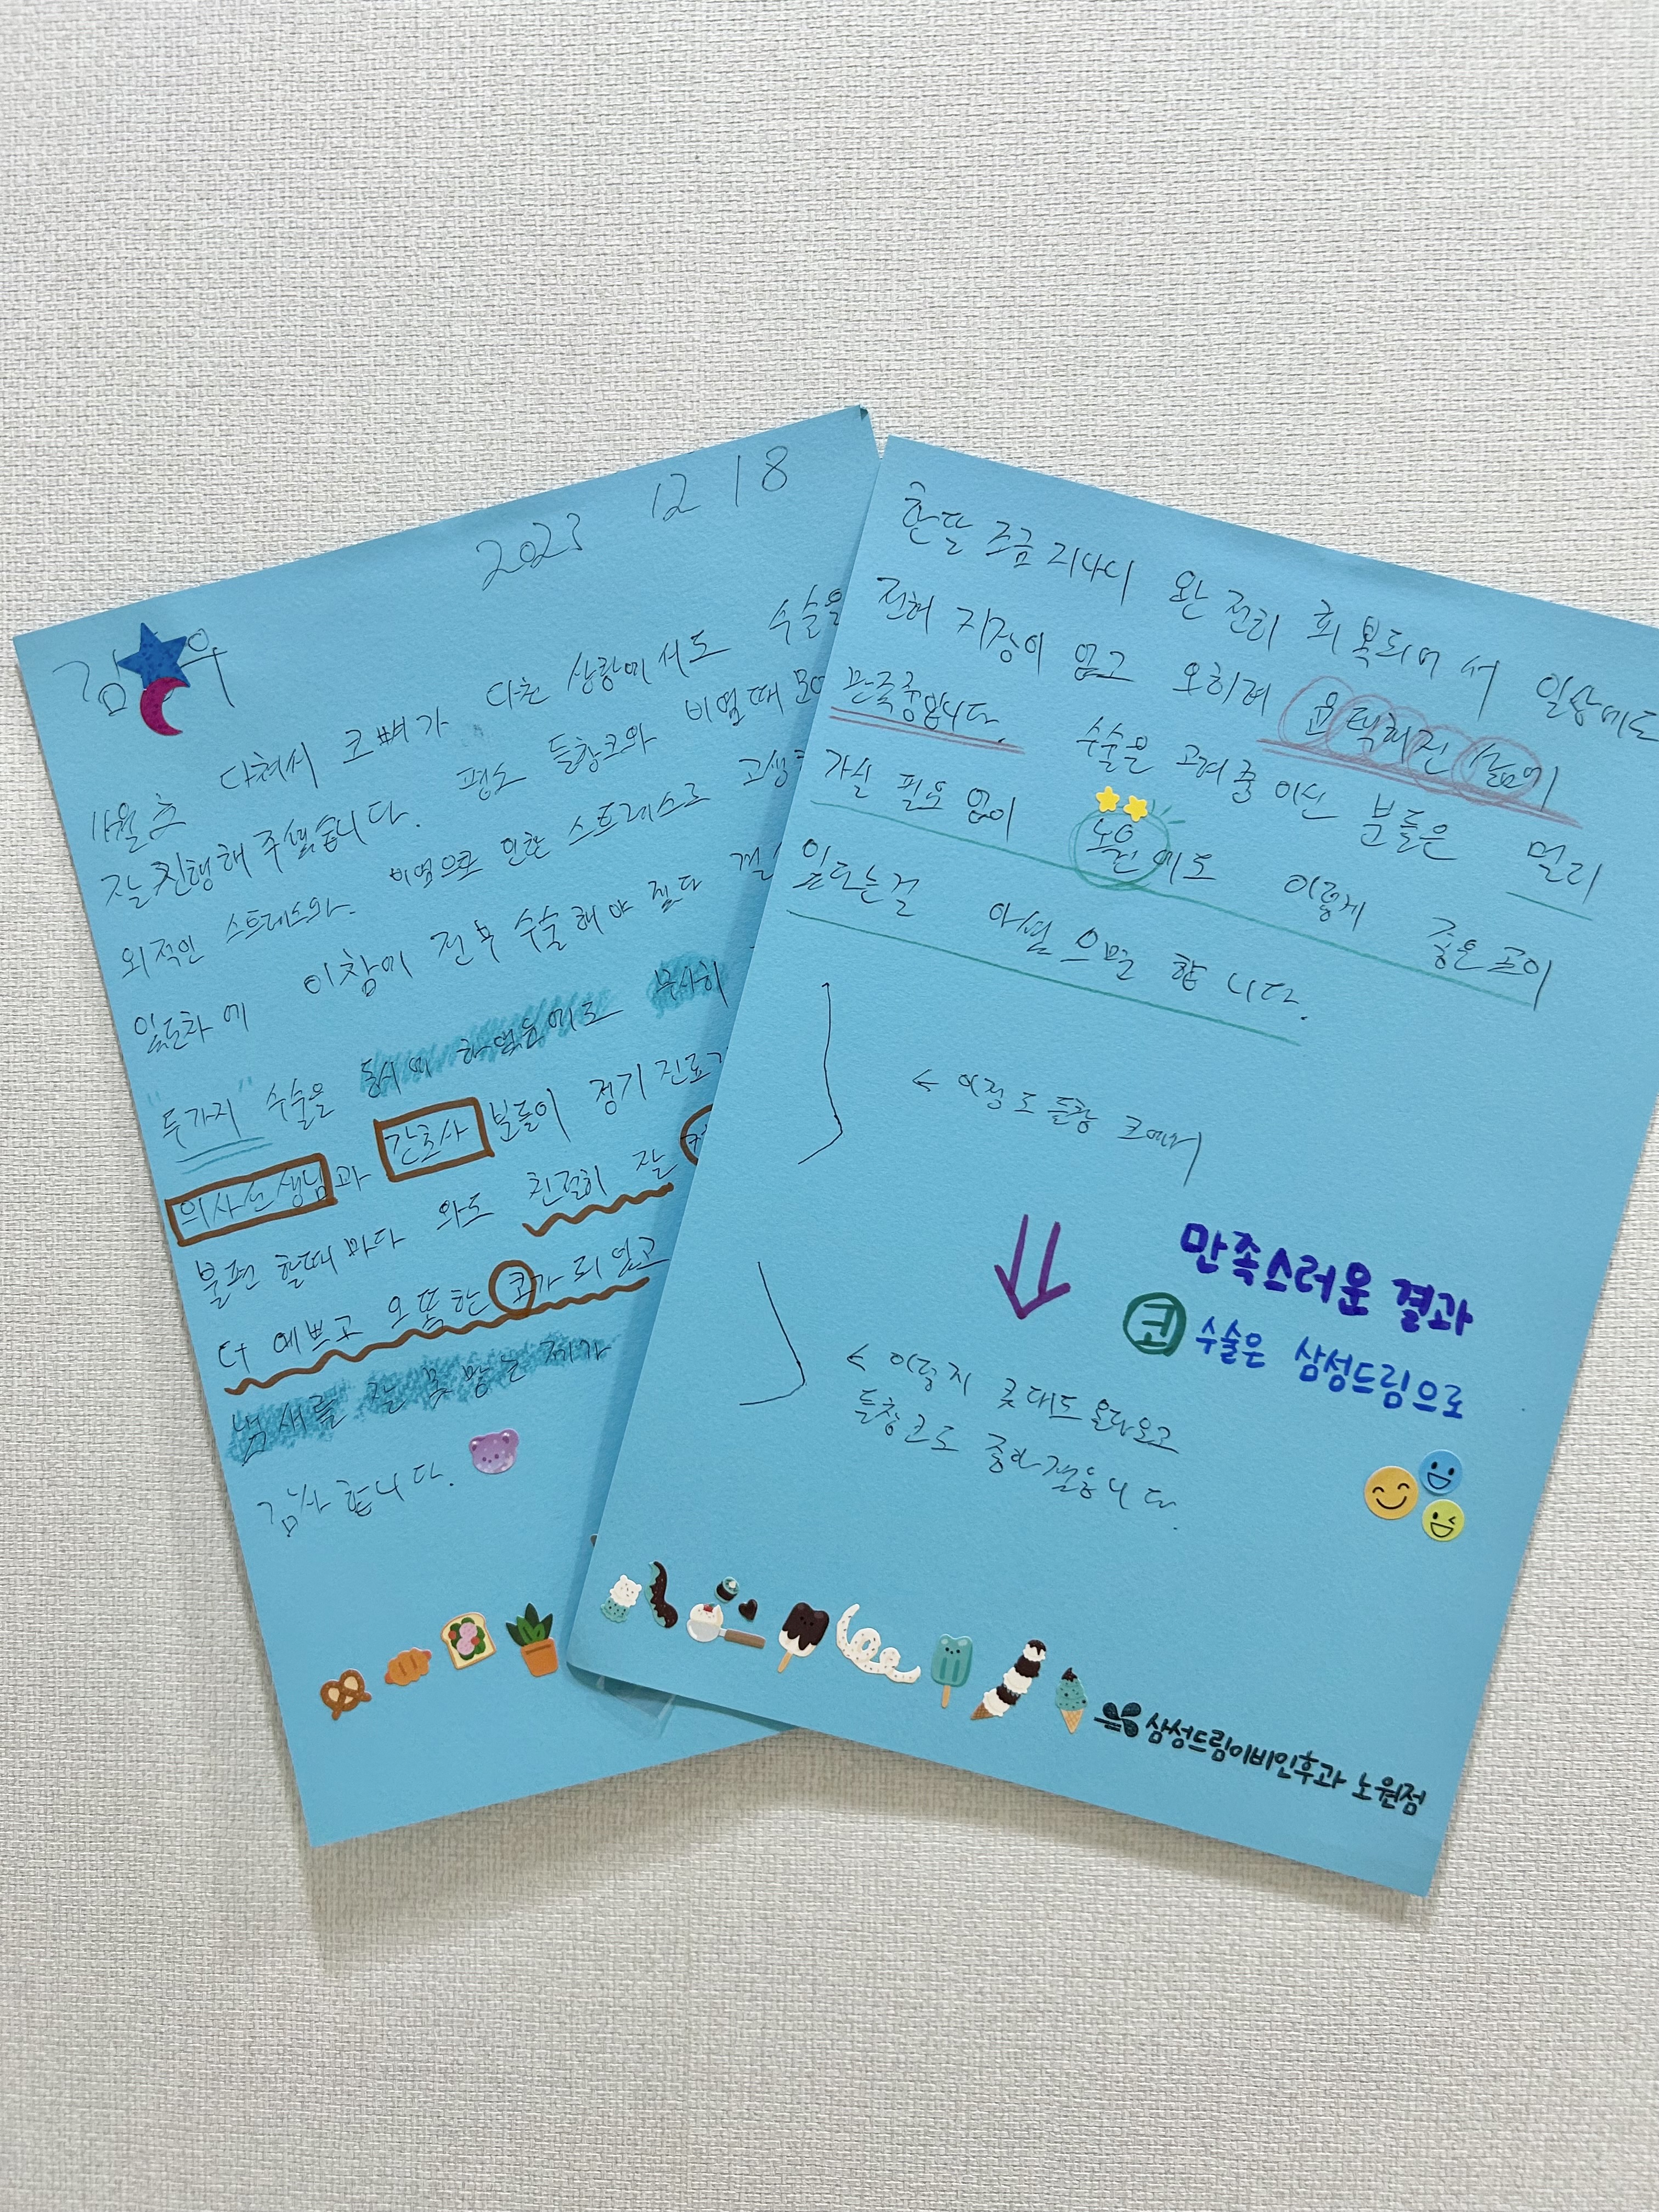 2023 12 18
김 우
11월 초 다쳐서 코뼈가 다친 상황에서도 수술을
잘 진행해 주셨습니다. 평소 들창코와 비염때
외적인 스트레스와 비염으로 인한 스트레스로 고생
있던차에 이참에 전부 수술해야 겠다
"두가지" 수술을 동시에 하였음에도 무사히
의사선생님과 간호사 분들이 정기진료
불편 할때마다 와도 친절히 잘
더 예쁘고 오똑한 코가 되었고
냄새를 잘 못맡는 제가
감사합니다.
한달 조금 지나니 완전히 회복되어서 일상에도
전혀 지장이 없고 오히려 윤택해진 삶에
만족중입니다. 수술을 고려중이신 분들은 멀리
가실 필요없이 노원에도 이렇게 좋은곳이
있다는걸 아셨으면 합니다.
← 이정도 들창코에서
만족스러운 결과
코 수술은 삼성드림으로
← 이렇게 콧대도 올라오고
들창코도 좋아졌습니다.
삼성드림이비인후과 노원점